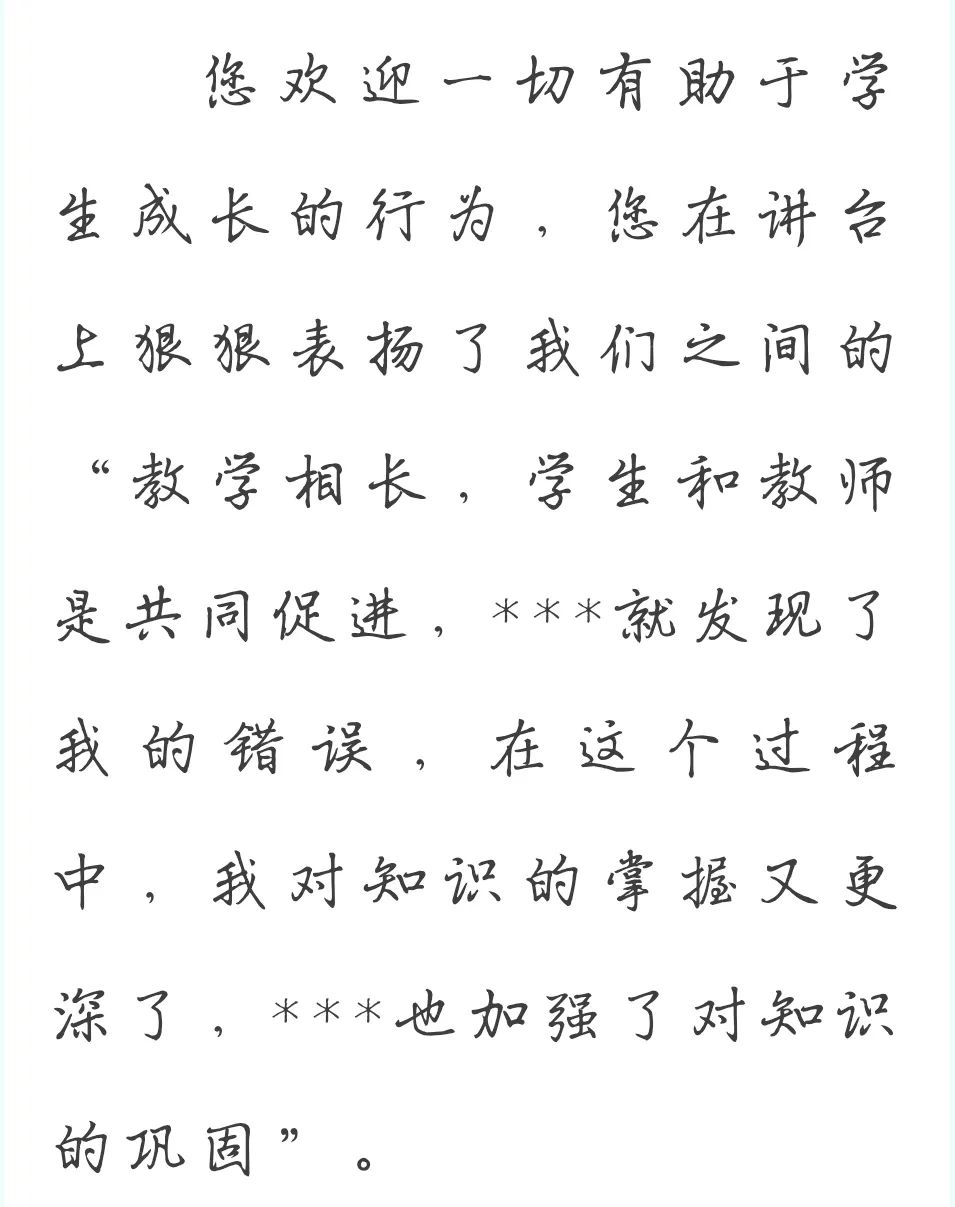 您欢迎一切有助于学
生成长的行为，您在讲台
上狠狠表扬了我们之间的
“教学相长，学生和教师
是共同促进，***就发现了
我的错误，在这个过程
中，我对知识的掌握又更
深了，***也加强了对知识
的巩固”。